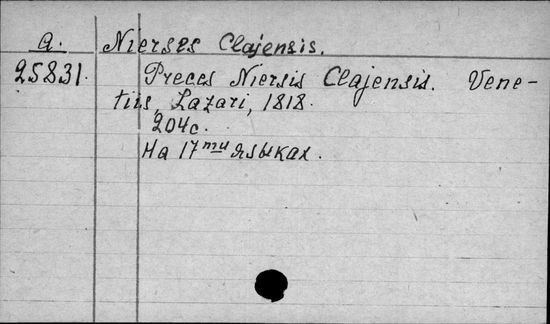 A. Nierses Clajensis.
25831. Preces Niersis Clajensis. Vene-
tiis, Lazari, 1818.
204с.
На 17ти языках.